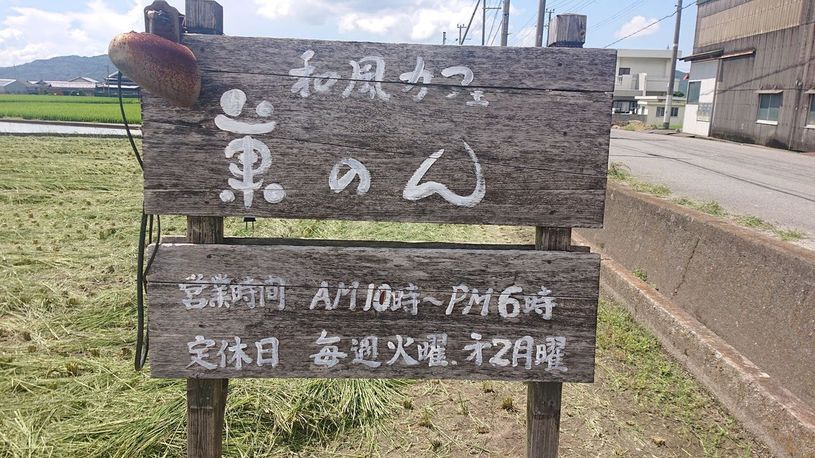 和風カフェ
菓のん
営業時間 AM10時~PM6時
定休日 毎週火曜.才2月曜